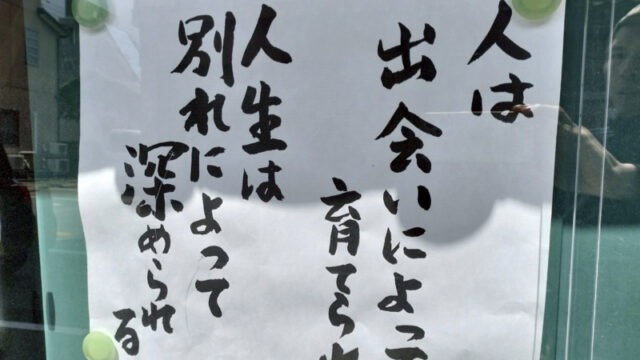 人は
出会いによって
育てられ
人生は
別れによって
深められる